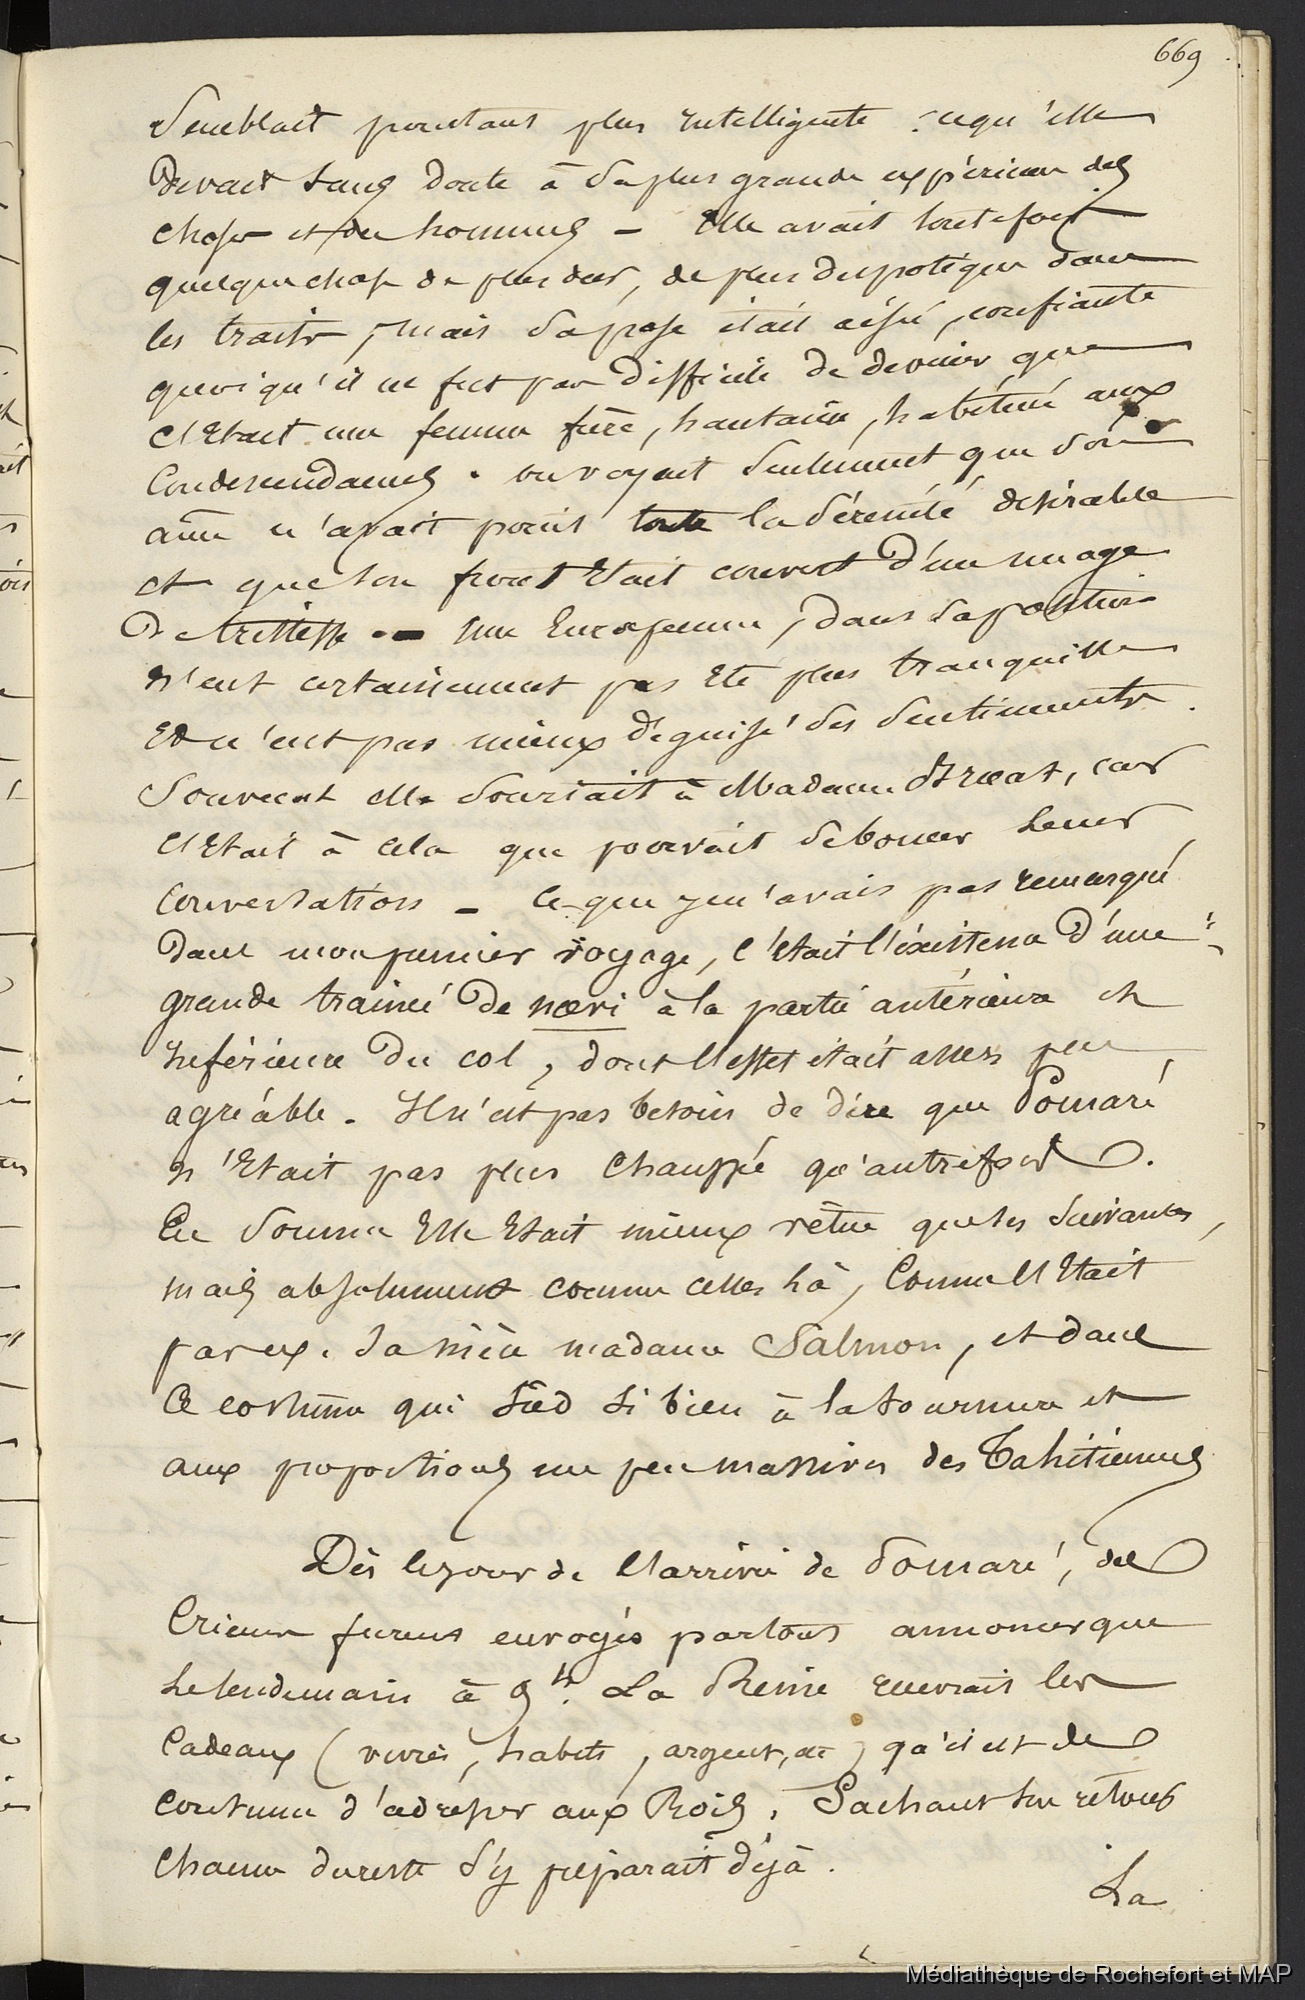 669
Semblait pourtant plus intelligente : ce qu'elle
devait sans doute à sa plus grande expérience des
choses et des hommes - Elle avait toutefois
quelque chose de plus dur, de plus despotique dans
les traits, mais sa pose était aisée, confiante
quoiqu'il ne fut pas difficile de deviner que
c'Etait une femme fière, hautaine, habituée aux
Condescendances. on voyait seulement que son
âme n'avait point toute la sérénité désirable
et que son front Etait couvert d'un nuage
De tristesse - une Européenne, dans sa position
n'eut certainement pas Eté plus tranquille
Et n'eut pas mieux déguisé ses sentiments.
Souvent elle souriait à Madame Bruat, car
c'Etait à cela que pouvait se borner leur
conversation - Ce que je n'avais pas remarqué
dans mon premier voyage, c'Etait l'éxistence d'une
grande trainée De nævi à la partie antérieure et
inférieure Du col, dont l'effet était assez peu
agréable. Il n'est pas besoin de dire que Pomaré
n'Etait pas plus chaussée qu'autrefois.
En somme Elle Etait mieux vêtue que les suivantes,
mais absolument comme celles là, Comme l'Etait
par ex. sa nièce madame Salmon, et dans
Ce costume qui sied si bien à la tournure et
aux proportions un peu massives des Tahitiennes
Dès le jour de l'arrivée de Pomaré, des
Crieurs furent envoyés partout annoncer que
le lendemain à 9h. La Reine recevrait les
Cadeaux (vivres, habits, argent, etc) qu'il est de
coutume d'adresser aux Rois. Sachant son retour
chacun du reste s'y préparait déjà.
La
Médiathèque de Rochefort et MAP